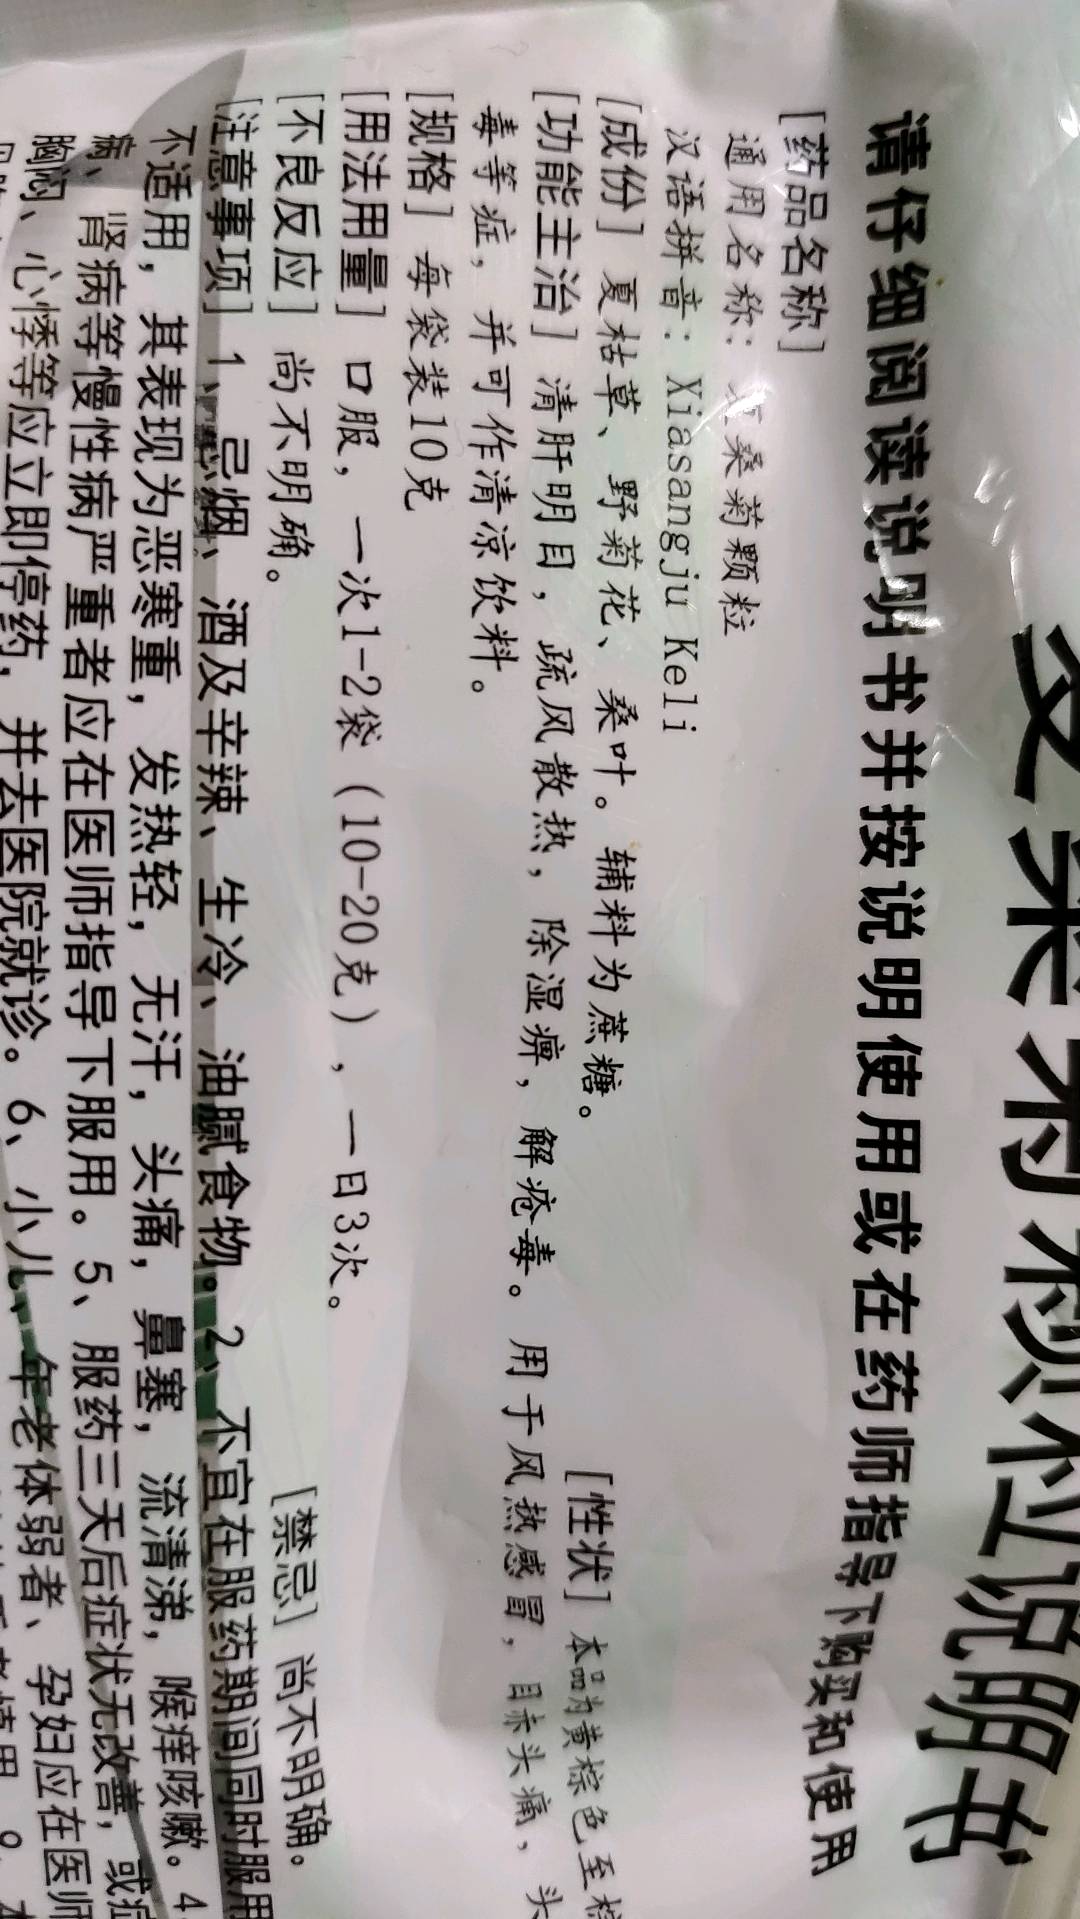 夏桑菊颗粒说明书
请仔细阅读说明书并按说明使用或在药师指导下购买和使用
[药品名称]
通用名称：夏桑菊颗粒
汉语拼音：Xiasangju Keli
[成份] 夏枯草、野菊花、桑叶。辅料为蔗糖。
[性状] 本品为黄棕色至棕
[功能主治] 清肝明目，疏风散热，除湿痹，解疮毒。用于风热感冒，目赤头痛，头
毒等症，并可作清凉饮料。
[规格] 每袋装10克
[用法用量] 口服，一次1-2袋（10-20克），一日3次。
[不良反应] 尚不明确。 [禁忌] 尚不明确。
[注意事项] 1、忌烟、酒及辛辣、生冷、油腻食物。2、不宜在服药期间同时服用
不适用，其表现为恶寒重，发热轻，无汗，头痛，鼻塞，流清涕，喉痒咳嗽。4
病、肾病等慢性病严重者应在医师指导下服用。5、服药三天后症状无改善，或
胸闷、心悸等应立即停药，并去医院就诊。6、小儿、年老体弱者、孕妇应在医师